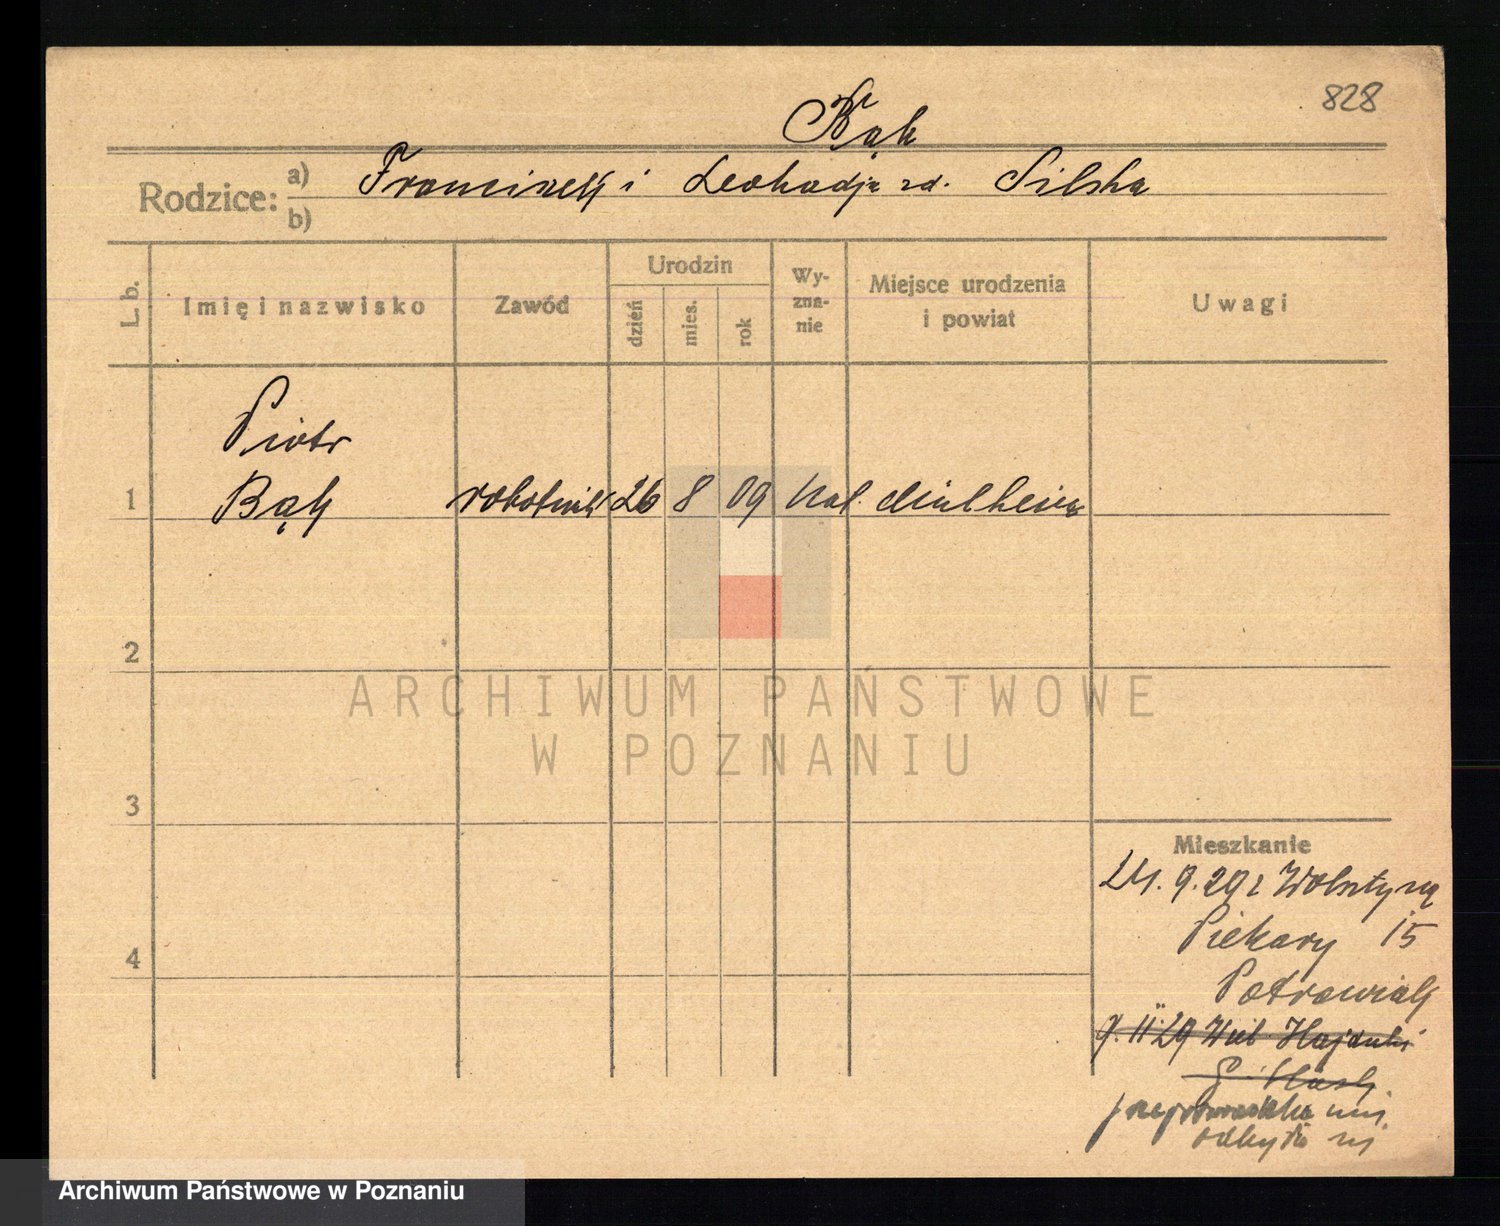 828
Bąk
Rodzice: a) Franciszek i Leokadja zd. Silska
b)
L. b. Imię i nazwisko Zawód Urodzin dzień mies. rok Wyznanie Miejsce urodzenia i powiat Uwagi
Piotr
1 Bąk robotnik 26 8 09 kat. Mülheim
2
ARCHIWUM PAŃSTWOWE
W POZNANIU
3
Mieszkanie
24. 9. 29 z Wolsztyna
Piekary 15
4
Patrowiak
9. 11. 29 Wiel. Hajduki
G. Śląsk
przeprowadzka nie
odbyła się
Archiwum Państwowe w Poznaniu